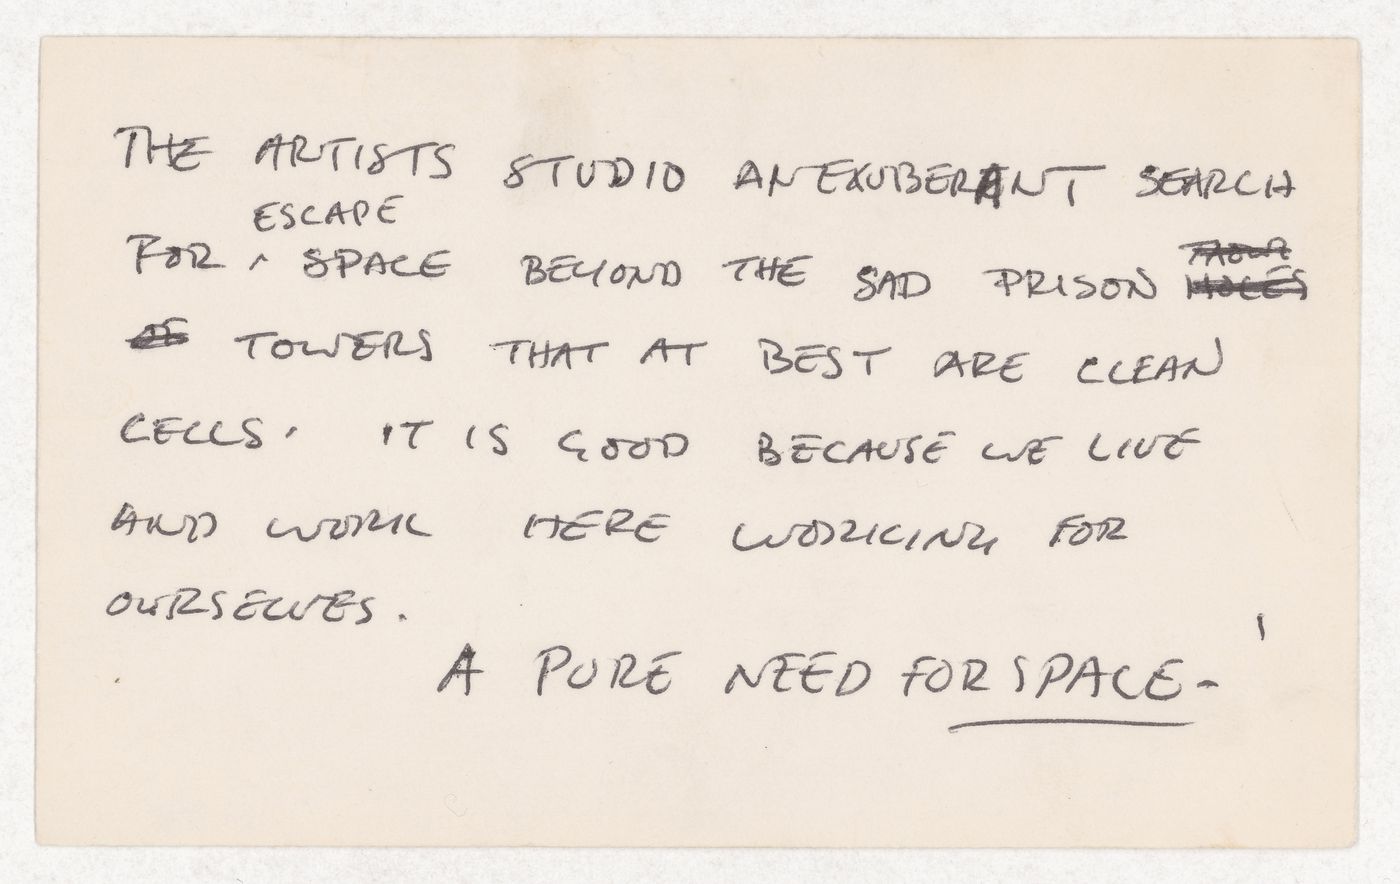 THE ARTISTS STUDIO AN EXUBERANT SEARCH
ESCAPE
FOR ^ SPACE BEYOND THE SAD PRISON HOLES
OF TOWERS THAT AT BEST ARE CLEAN
CELLS. IT IS GOOD BECAUSE WE LIVE
AND WORK HERE WORKING FOR
OURSELVES.
A PURE NEED FOR SPACE-